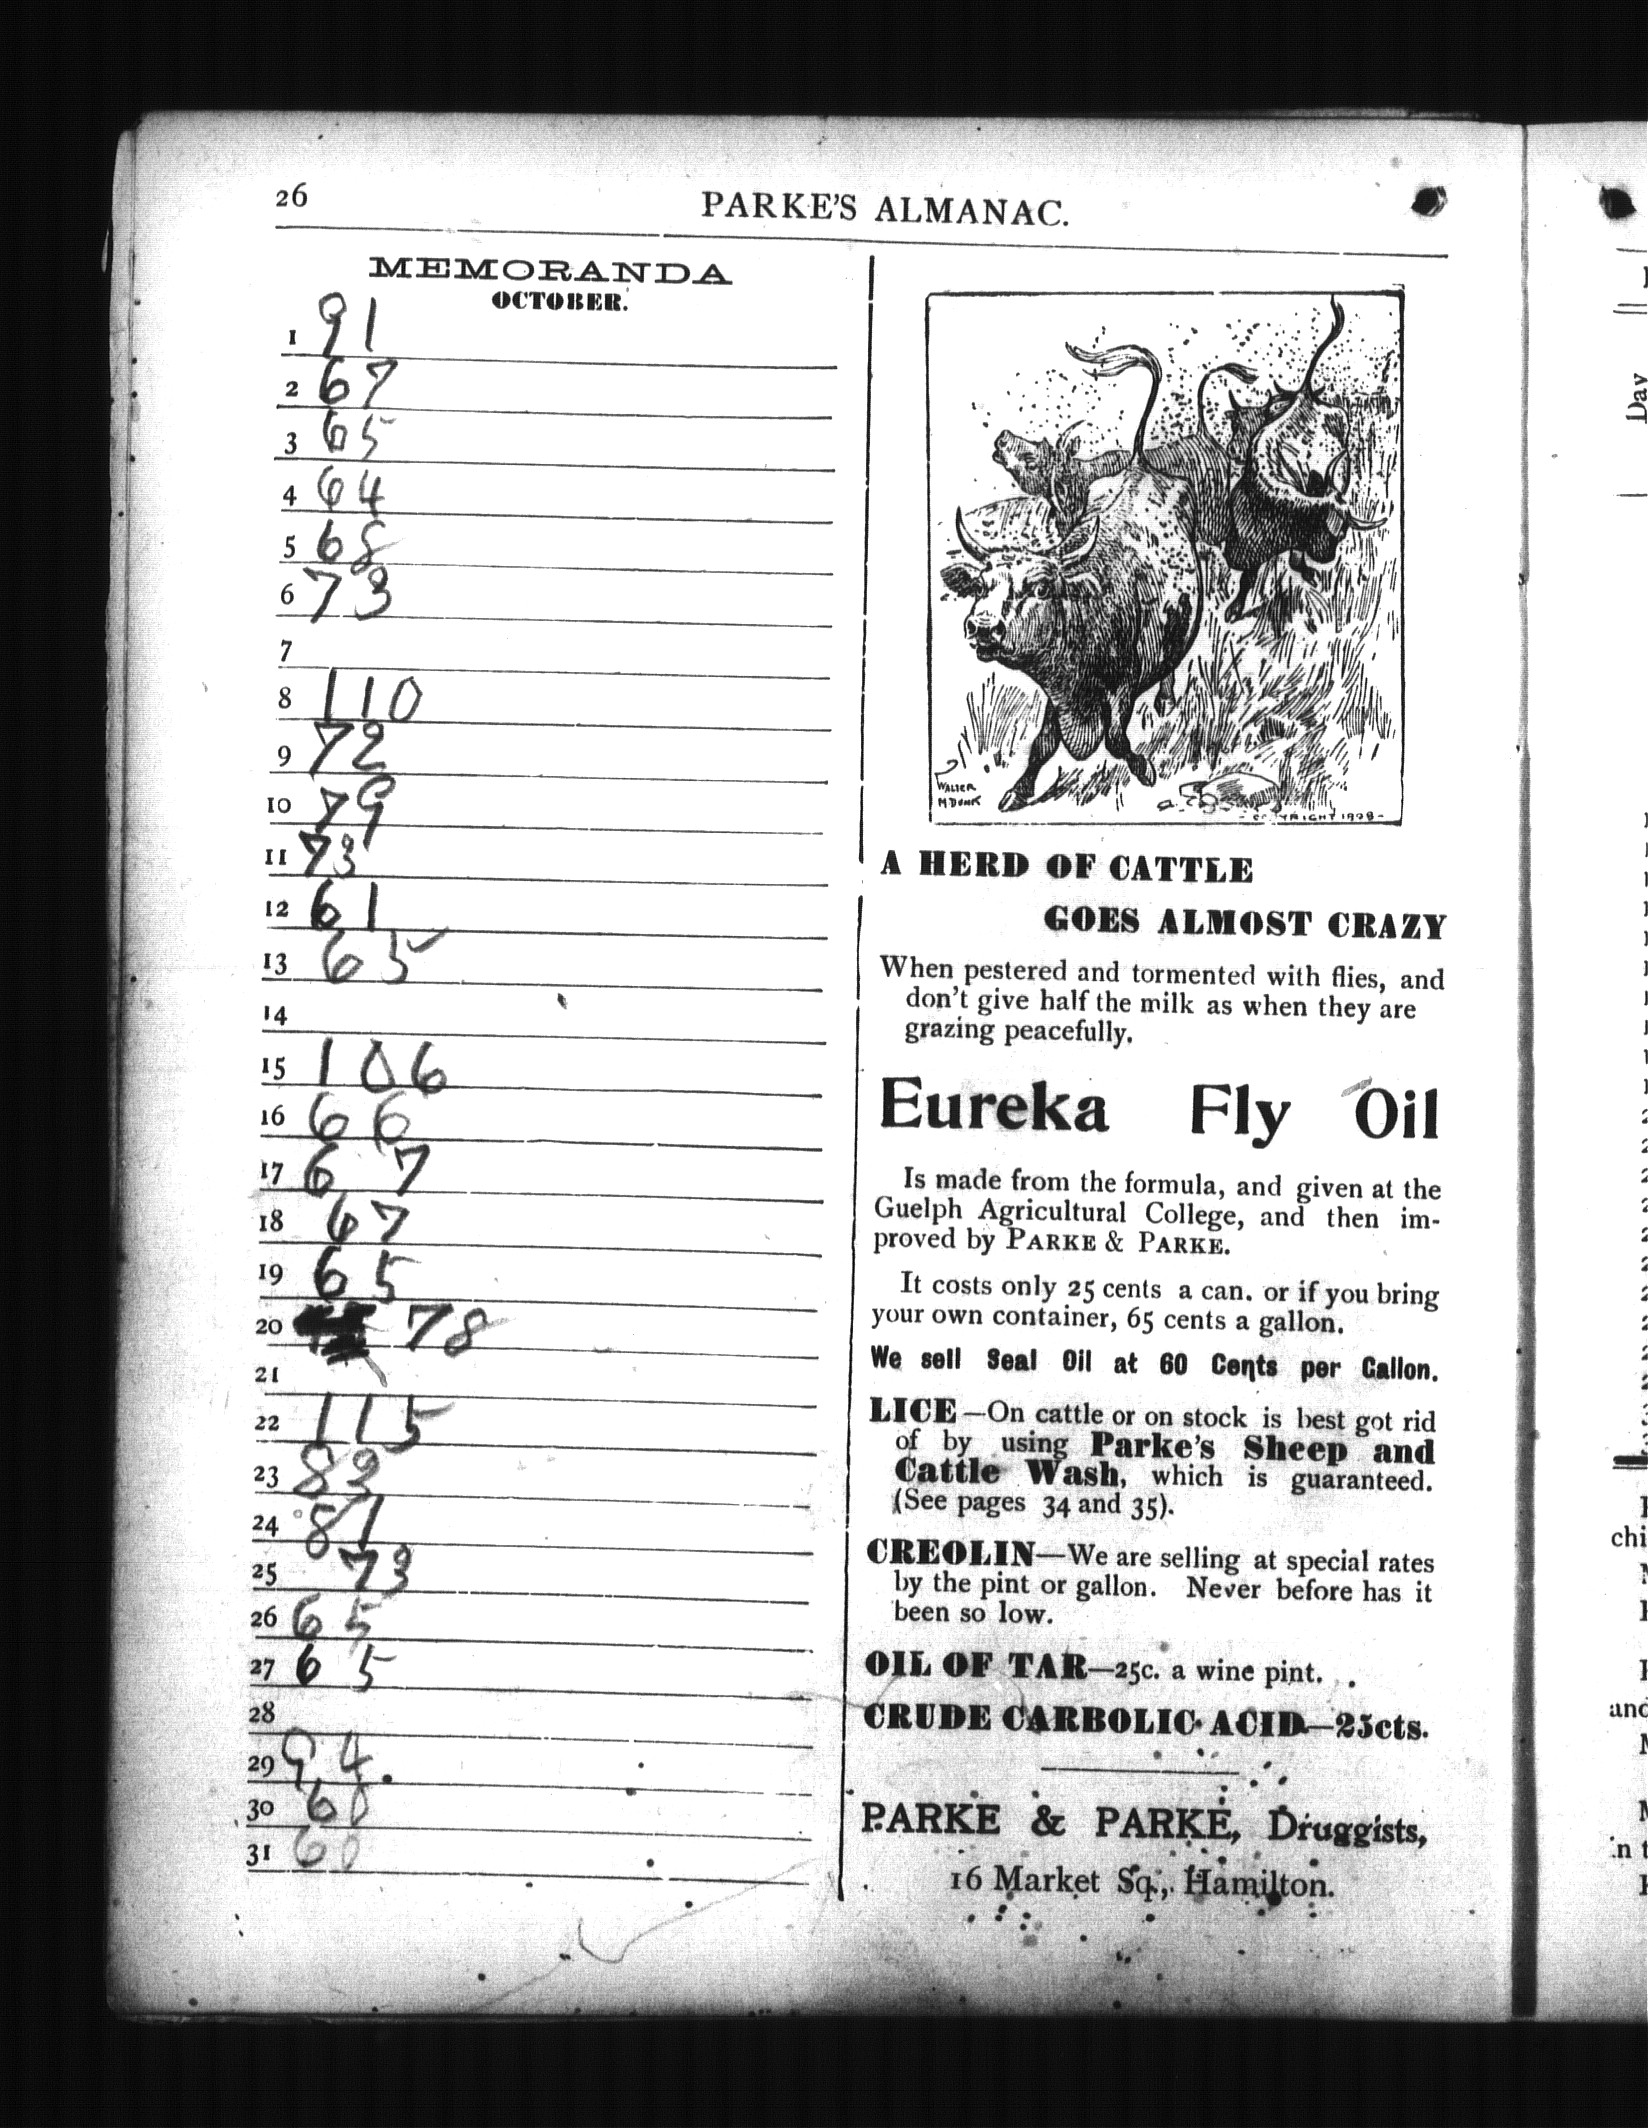 26
PARKE'S ALMANAC.
MEMORANDA
OCTOBER.
1 91
2 67
3 65
4 64
5 68
6 73
7
8 110
9 72
10 79
11 73
12 61
13 65
14
15 106
16 66
17 6 7
18 67
19 65
20 78
21
22 115
23 82
24 81
25 73
26 65
27 65
28
29 94.
30 60
31 60
WALTER
M DUNK
COPYRIGHT 1898-
A HERD OF CATTLE
GOES ALMOST CRAZY
When pestered and tormented with flies, and
don't give half the milk as when they are
grazing peacefully.
Eureka Fly Oil
Is made from the formula, and given at the
Guelph Agricultural College, and then im-
proved by PARKE & PARKE.
It costs only 25 cents a can. or if you bring
your own container, 65 cents a gallon.
We sell Seal Oil at 60 Cents per Gallon.
LICE—On cattle or on stock is best got rid
of by using Parke's Sheep and
Cattle Wash, which is guaranteed.
(See pages 34 and 35).
CREOLIN—We are selling at special rates
by the pint or gallon. Never before has it
been so low.
OIL OF TAR—25c. a wine pint.
CRUDE CARBOLIC ACID—25cts.
PARKE & PARKE, Druggists,
16 Market Sq., Hamilton.
Day
chi
and